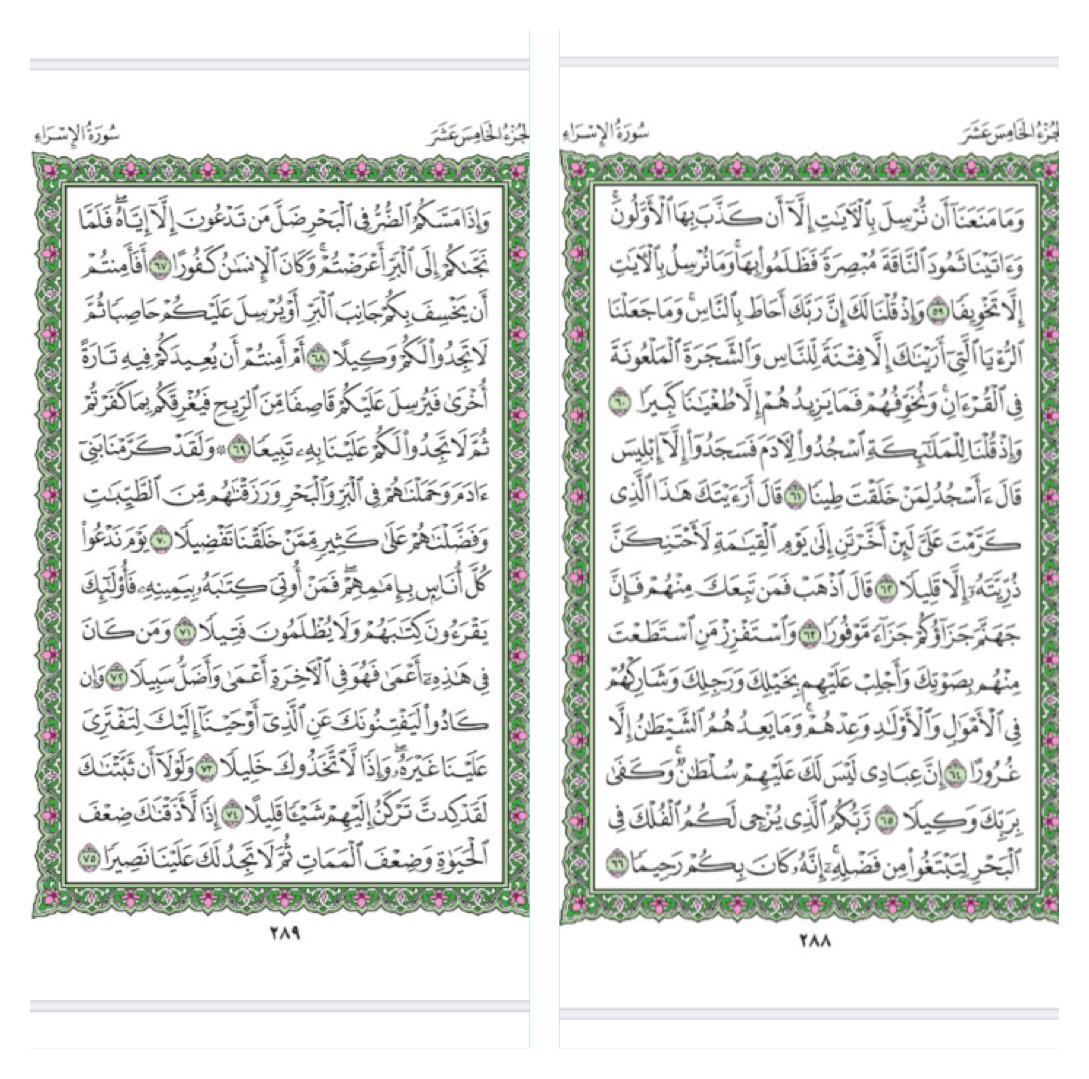 الجزء الخامس عشر
سورة الإسراء
وَمَا مَنَعَنَآ أَن نُّرْسِلَ بِٱلْءَايَٰتِ إِلَّآ أَن كَذَّبَ بِهَا ٱلْأَوَّلُونَ ۚ
وَءَاتَيْنَا ثَمُودَ ٱلنَّاقَةَ مُبْصِرَةً فَظَلَمُوا۟ بِهَا ۚ وَمَا نُرْسِلُ بِٱلْءَايَٰتِ
إِلَّا تَخْوِيفًا ٥٩ وَإِذْ قُلْنَا لَكَ إِنَّ رَبَّكَ أَحَاطَ بِٱلنَّاسِ ۚ وَمَا جَعَلْنَا
ٱلرُّءْيَا ٱلَّتِىٓ أَرَيْنَٰكَ إِلَّا فِتْنَةً لِّلنَّاسِ وَٱلشَّجَرَةَ ٱلْمَلْعُونَةَ
فِى ٱلْقُرْءَانِ ۚ وَنُخَوِّفُهُمْ فَمَا يَزِيدُهُمْ إِلَّا طُغْيَٰنًا كَبِيرًا ٦٠
وَإِذْ قُلْنَا لِلْمَلَٰٓئِكَةِ ٱسْجُدُوا۟ لِءَادَمَ فَسَجَدُوٓا۟ إِلَّآ إِبْلِيسَ
قَالَ ءَأَسْجُدُ لِمَنْ خَلَقْتَ طِينًا ٦١ قَالَ أَرَءَيْتَكَ هَٰذَا ٱلَّذِى
كَرَّمْتَ عَلَىَّ لَئِنْ أَخَّرْتَنِ إِلَىٰ يَوْمِ ٱلْقِيَٰمَةِ لَأَحْتَنِكَنَّ
ذُرِّيَّتَهُۥٓ إِلَّا قَلِيلًا ٦٢ قَالَ ٱذْهَبْ فَمَن تَبِعَكَ مِنْهُمْ فَإِنَّ
جَهَنَّمَ جَزَآؤُكُمْ جَزَآءً مَّوْفُورًا ٦٣ وَٱسْتَفْزِزْ مَنِ ٱسْتَطَعْتَ
مِنْهُم بِصَوْتِكَ وَأَجْلِبْ عَلَيْهِم بِخَيْلِكَ وَرَجِلِكَ وَشَارِكْهُمْ
فِى ٱلْأَمْوَٰلِ وَٱلْأَوْلَٰدِ وَعِدْهُمْ ۚ وَمَا يَعِدُهُمُ ٱلشَّيْطَٰنُ إِلَّا
غُرُورًا ٦٤ إِنَّ عِبَادِى لَيْسَ لَكَ عَلَيْهِمْ سُلْطَٰنٌ ۚ وَكَفَىٰ
بِرَبِّكَ وَكِيلًا ٦٥ رَّبُّكُمُ ٱلَّذِى يُزْجِى لَكُمُ ٱلْفُلْكَ فِى
ٱلْبَحْرِ لِتَبْتَغُوا۟ مِن فَضْلِهِۦٓ ۚ إِنَّهُۥ كَانَ بِكُمْ رَحِيمًا ٦٦
٢٨٨
الجزء الخامس عشر
سورة الإسراء
وَإِذَا مَسَّكُمُ ٱلضُّرُّ فِى ٱلْبَحْرِ ضَلَّ مَن تَدْعُونَ إِلَّآ إِيَّاهُ ۖ فَلَمَّا
نَجَّىٰكُمْ إِلَى ٱلْبَرِّ أَعْرَضْتُمْ ۚ وَكَانَ ٱلْإِنسَٰنُ كَفُورًا ٦٧ أَفَأَمِنتُمْ
أَن يَخْسِفَ بِكُمْ جَانِبَ ٱلْبَرِّ أَوْ يُرْسِلَ عَلَيْكُمْ حَاصِبًا ثُمَّ
لَا تَجِدُوا۟ لَكُمْ وَكِيلًا ٦٨ أَمْ أَمِنتُمْ أَن يُعِيدَكُمْ فِيهِ تَارَةً
أُخْرَىٰ فَيُرْسِلَ عَلَيْكُمْ قَاصِفًا مِّنَ ٱلرِّيحِ فَيُغْرِقَكُم بِمَا كَفَرْتُمْ
ثُمَّ لَا تَجِدُوا۟ لَكُمْ عَلَيْنَا بِهِۦ تَبِيعًا ٦٩ ۞ وَلَقَدْ كَرَّمْنَا بَنِىٓ
ءَادَمَ وَحَمَلْنَٰهُمْ فِى ٱلْبَرِّ وَٱلْبَحْرِ وَرَزَقْنَٰهُم مِّنَ ٱلطَّيِّبَٰتِ
وَفَضَّلْنَٰهُمْ عَلَىٰ كَثِيرٍ مِّمَّنْ خَلَقْنَا تَفْضِيلًا ٧٠ يَوْمَ نَدْعُوا۟
كُلَّ أُنَاسٍۭ بِإِمَٰمِهِمْ ۖ فَمَنْ أُوتِىَ كِتَٰبَهُۥ بِيَمِينِهِۦ فَأُو۟لَٰٓئِكَ
يَقْرَءُونَ كِتَٰبَهُمْ وَلَا يُظْلَمُونَ فَتِيلًا ٧١ وَمَن كَانَ
فِى هَٰذِهِۦٓ أَعْمَىٰ فَهُوَ فِى ٱلْءَاخِرَةِ أَعْمَىٰ وَأَضَلُّ سَبِيلًا ٧٢ وَإِن
كَادُوا۟ لَيَفْتِنُونَكَ عَنِ ٱلَّذِىٓ أَوْحَيْنَآ إِلَيْكَ لِتَفْتَرِىَ
عَلَيْنَا غَيْرَهُۥ ۖ وَإِذًا لَّٱتَّخَذُوكَ خَلِيلًا ٧٣ وَلَوْلَآ أَن ثَبَّتْنَٰكَ
لَقَدْ كِدتَّ تَرْكَنُ إِلَيْهِمْ شَيْـًٔا قَلِيلًا ٧٤ إِذًا لَّأَذَقْنَٰكَ ضِعْفَ
ٱلْحَيَوٰةِ وَضِعْفَ ٱلْمَمَاتِ ثُمَّ لَا تَجِدُ لَكَ عَلَيْنَا نَصِيرًا ٧٥
٢٨٩